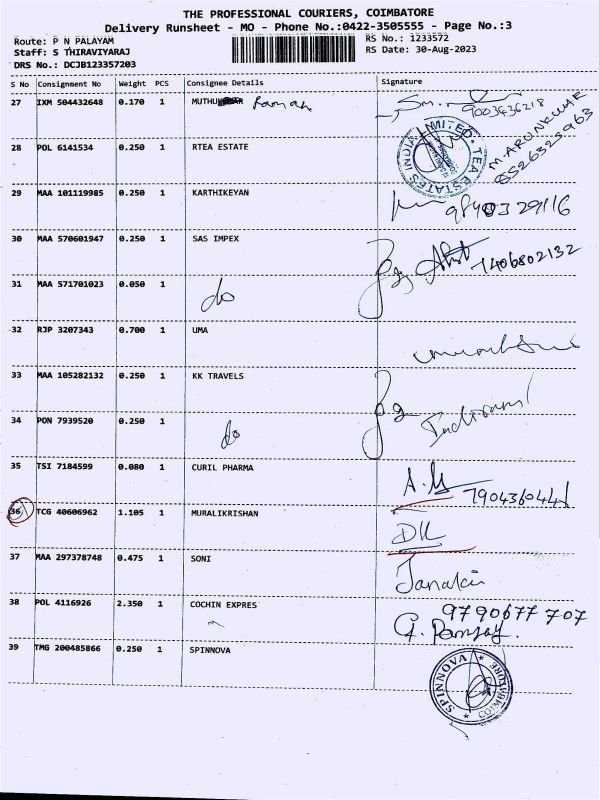 THE PROFESSIONAL COURIERS, COIMBATORE
Delivery Runsheet - MO - Phone No.:0422-3505555 - Page No.:3
Route: P N PALAYAM
RS No.: 1233572
Staff: S THIRAVIYARAJ
RS Date: 30-Aug-2023
DRS No.: DCJB123357203
S No Consignment No Weight PCS Consignee Details Signature
27 IXM 504432648 0.170 1 MUTHU Raman
9003436218
28 POL 6141534 0.250 1 RTEA ESTATE
TEA ESTATES INDIA LIMITED
M. ARUNKUMAR
8526323963
29 MAA 101119985 0.250 1 KARTHIKEYAN
9840329116
30 MAA 570601947 0.250 1 SAS IMPEX
7406802132
31 MAA 571701023 0.050 1 do
32 RJP 3207343 0.700 1 UMA
33 MAA 105282132 0.250 1 KK TRAVELS
34 PON 7939520 0.250 1 do
35 TSI 7184599 0.080 1 CURIL PHARMA
36 TCG 40606962 1.105 1 MURALIKRISHAN
37 MAA 297378748 0.475 1 SONI
Janaki
38 POL 4116926 2.350 1 COCHIN EXPRES
9790677707
39 TMG 200485866 0.250 1 SPINNOVA
SPINNOVA COIMBATORE